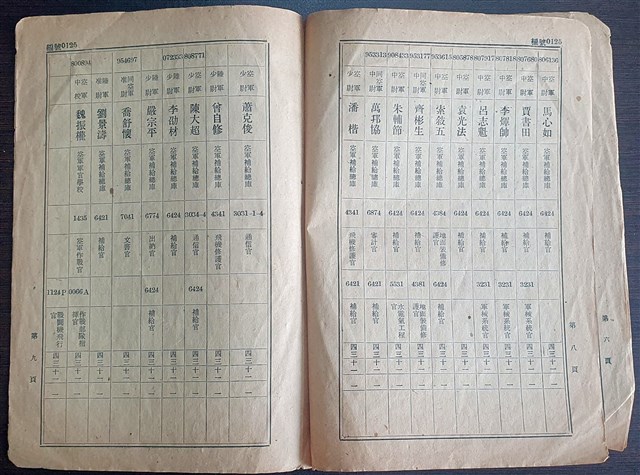 編號0125
第六頁
第八頁
空軍中尉 馬心如 空軍補給總庫 6424 補給官 四三 十一 一
807680 空軍中尉 賈書田 空軍補給總庫 6424 補給官 3231 軍械系統官 四三 十一 一
空軍中尉 李鐸帥 空軍補給總庫 6424 補給官 3231 軍械系統官 四三 十一 一
空軍中尉 呂志魁 空軍補給總庫 6424 補給官 3231 軍械系統官 四三 十一 一
805878 空軍中尉 袁光法 空軍補給總庫 6424 補給官 四三 十一 一
953615 空軍中尉 索敘五 空軍補給總庫 4384 地面裝備修護官 6424 補給官 四三 十一 一
953177 同空軍中尉 齊彬生 空軍補給總庫 6424 補給官 4381 地面裝備修護官 四三 十一 一
908433 空軍中尉 朱輔節 空軍補給總庫 6424 補給官 5531 水電氣工程官 四三 十一 一
953513 同空軍中尉 萬邦協 空軍補給總庫 6874 審計官 6421 補給官 四三 十一 一
空軍少尉 潘楷 空軍補給總庫 4341 飛機修護官 6421 補給官 四三 十一 一
編號0125
空軍少尉 蕭克俊 空軍補給總庫 3031-1-4 通信官
少尉 曾自修 空軍補給總庫 4341 飛機修護官 四三 十一 一
808771 空軍少尉 陳大超 空軍補給總庫 3034-4 通信官 6424 補給官 四三 十一 一
072355 陸軍少尉 李劭材 空軍補給總庫 6424 補給官 四三 十一 一
少尉 嚴宗平 空軍補給總庫 6774 出納官 6424 補給官 四三 十一 一
954697 同空軍准尉 喬舒懷 空軍補給總庫 7041 文書官 四三 十一 一
准尉 劉景濤 空軍補給總庫 6421 補給官 四三 十一 一
800894 空軍中校 魏振權 空軍軍官學校 1435 空軍作戰官 1124P 0066A 四三 十一 一
第九頁